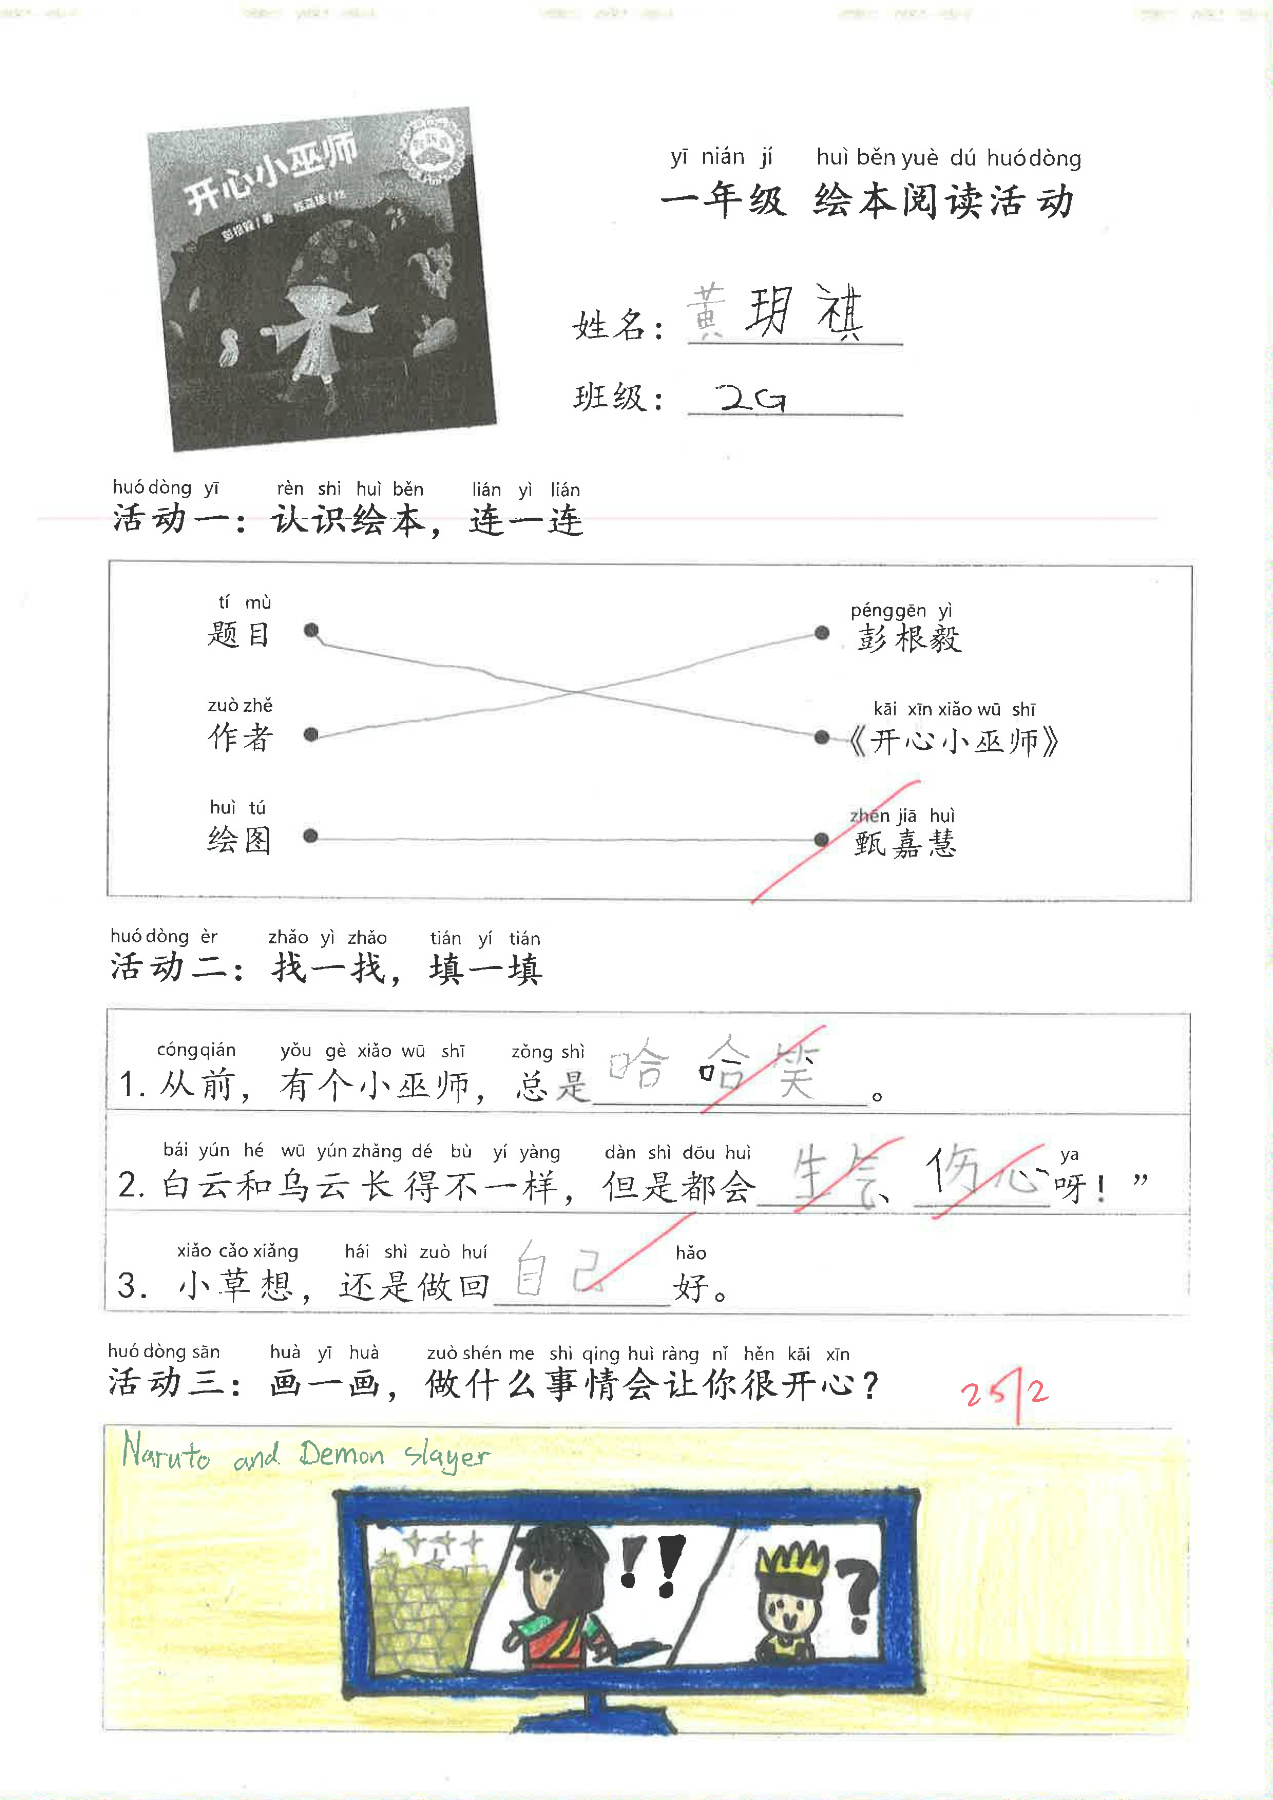 开心小巫师
彭根毅/著 甄嘉慧/绘
yī nián jí huì běn yuè dú huó dòng
一年级 绘本阅读活动
姓名： 黄玥祺
班级： 2G
huó dòng yī rèn shi huì běn lián yì lián
活动一：认识绘本，连一连
tí mù pénggēn yì
题目 彭根毅
zuò zhě kāi xīn xiǎo wū shī
作者 《开心小巫师》
huì tú zhēn jiā huì
绘图 甄嘉慧
huó dòng èr zhǎo yì zhǎo tián yí tián
活动二：找一找，填一填
cóngqián yǒu gè xiǎo wū shī zǒng shì
1. 从前，有个小巫师，总是哈哈笑。
bái yún hé wū yún zhǎng dé bù yí yàng dàn shì dōu huì ya
2. 白云和乌云长得不一样，但是都会生气、伤心呀！”
xiǎo cǎo xiǎng hái shì zuò huí hǎo
3. 小草想，还是做回自己好。
huó dòng sān huà yī huà zuò shén me shì qing huì ràng nǐ hěn kāi xīn
活动三：画一画，做什么事情会让你很开心？ 25/2
Naruto and Demon slayer
!! ?